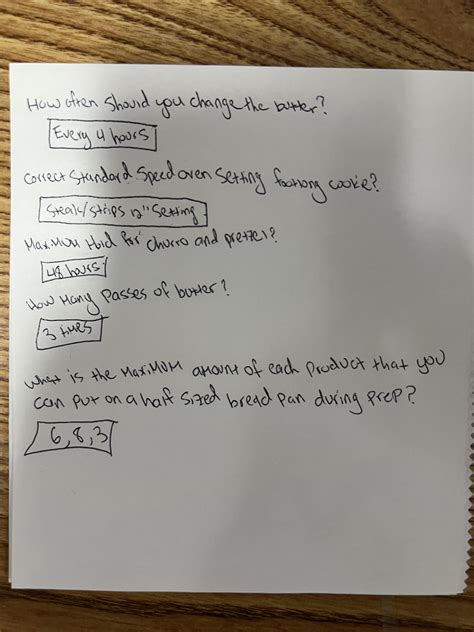 How often should you change the butter?
Every 4 hours
Correct standard speed oven setting footlong cookie?
Steak/strips 12" setting
Maximum Hold for churro and pretzel?
48 hours
How Many passes of butter?
3 times
What is the Maximum amount of each product that you
can put on a half sized bread pan during prep?
6, 8, 3